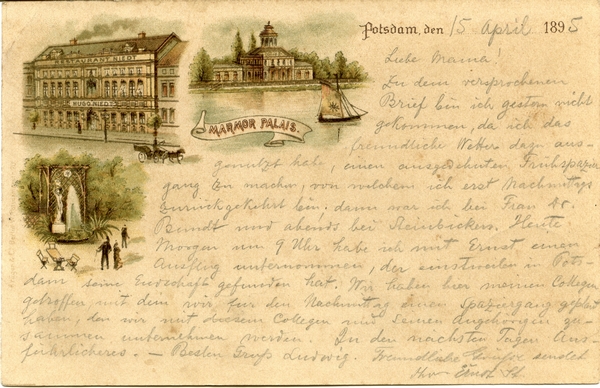 Potsdam, den 15 April 1895
RESTAURANT NIEDT
HUGO NIEDT
MARMOR PALAIS.
Liebe Mama!
Zu dem versprochenen
Brief bin ich gestern nicht
gekommen, da ich das
freundliche Wetter dazu aus-
genutzt habe, einen ausgedehnten Frühspazier
gang zu machen, von welchem ich erst Nachmittags
zurückgekehrt bin. dann war ich bei Frau Dr.
und abends bei Heute
Morgen um 9 Uhr habe ich mit Ernst einen
Ausflug unternommen, der einstweilen in Pots-
dam seine Endschaft gefunden hat. Wir haben hier meinen Collegen
getroffen mit dem wir für den Nachmittag einen Spaziergang geplant
haben, den wir mit diesem Collegen und seinen Angehörigen zu-
sammen unternehmen werden. In den nächsten Tagen Aus-
führlicheres. — Besten Gruß Ludwig. Freundliche Grüße sendet
Ernst St.